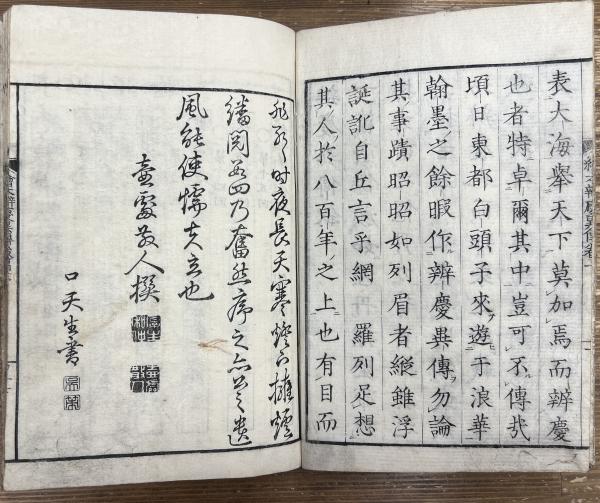 表大海擧天下莫加焉而辨慶
也者特卓爾其中豈可不傳哉
頃日東都白頭子來遊于浪華
翰墨之餘暇作辨慶異傳勿論
其事蹟昭昭如列眉者縱雖浮
誕訛自丘言乎網羅列足想
其人於八百年之上也有目而
時夜長天寒燈下擁爐
繙閲四乃奮然序之亦公之遺
風能使懦夫立也
散人撰
口天生書